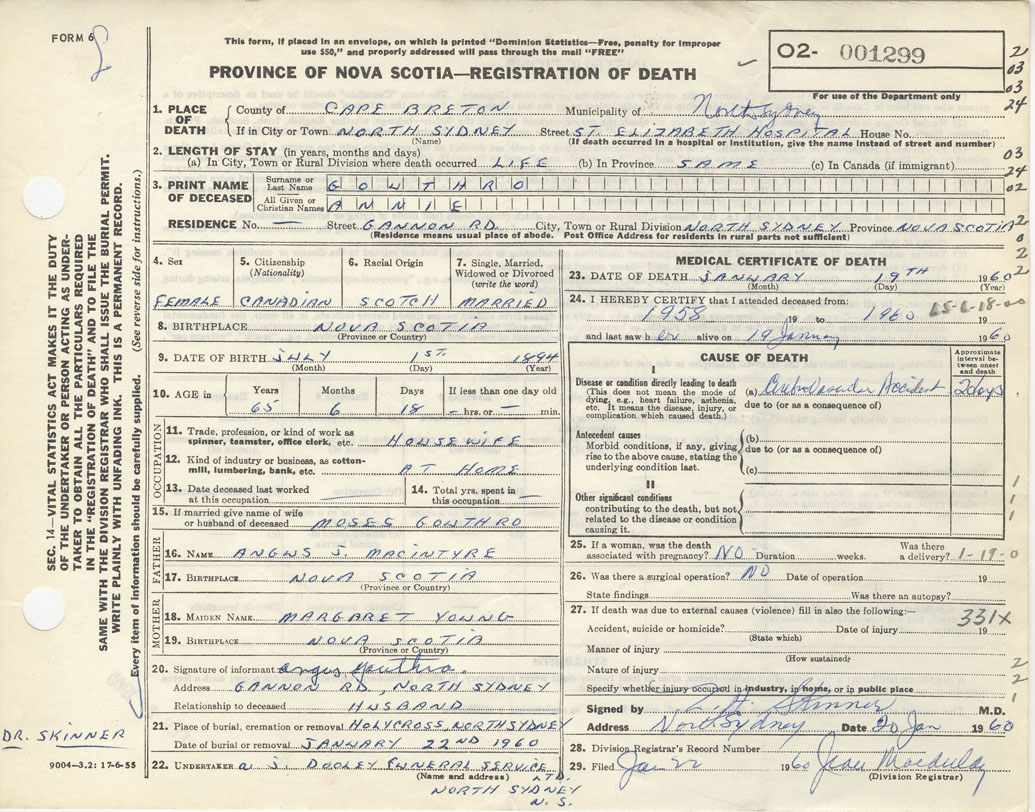 FORM 6
This form, if placed in an envelope, on which is printed "Dominion Statistics—Free, penalty for improper
use $50," and properly addressed will pass through the mail "FREE"
PROVINCE OF NOVA SCOTIA—REGISTRATION OF DEATH
02- 001299
For use of the Department only
2
03
03
24
1. PLACE OF DEATH
County of CAPE BRETON Municipality of North Sydney
If in City or Town NORTH SYDNEY Street ST. ELIZABETH HOSPITAL House No.
(Name) (If death occurred in a hospital or institution, give the name instead of street and number)
2. LENGTH OF STAY (in years, months and days)
(a) In City, Town or Rural Division where death occurred LIFE (b) In Province SAME (c) In Canada (if immigrant)
03
24
02
3. PRINT NAME OF DECEASED
Surname or Last Name GOWTHRO
All Given or Christian Names ANNIE
RESIDENCE No. — Street GANNON RD. City, Town or Rural Division NORTH SYDNEY Province NOVA SCOTIA
(Residence means usual place of abode. Post Office Address for residents in rural parts not sufficient)
4. Sex
FEMALE
5. Citizenship (Nationality)
CANADIAN
6. Racial Origin
SCOTCH
7. Single, Married, Widowed or Divorced (write the word)
MARRIED
8. BIRTHPLACE NOVA SCOTIA
(Province or Country)
9. DATE OF BIRTH JULY 1ST. 1894
(Month) (Day) (Year)
10. AGE in
Years Months Days If less than one day old
65 6 18 — hrs. or — min.
OCCUPATION
11. Trade, profession, or kind of work as spinner, teamster, office clerk, etc. HOUSEWIFE
12. Kind of industry or business, as cotton-mill, lumbering, bank, etc. AT HOME
13. Date deceased last worked at this occupation
14. Total yrs. spent in this occupation —
15. If married give name of wife or husband of deceased MOSES GOWTHRO
FATHER
16. NAME ANGUS J. MACINTYRE
17. BIRTHPLACE NOVA SCOTIA
(Province or Country)
MOTHER
18. MAIDEN NAME MARGARET YOUNG
19. BIRTHPLACE NOVA SCOTIA
(Province or Country)
20. Signature of informant
Address GANNON RD, NORTH SYDNEY
Relationship to deceased HUSBAND
21. Place of burial, cremation or removal HOLY CROSS NORTH SYDNEY
Date of burial or removal JANUARY 22ND 1960
22. UNDERTAKER A. J. DOOLEY FUNERAL SERVICE LTD.
(Name and address)
NORTH SYDNEY
N. S.
MEDICAL CERTIFICATE OF DEATH
23. DATE OF DEATH JANUARY 19TH 1960
(Month) (Day) (Year)
24. I HEREBY CERTIFY that I attended deceased from:
1958 19 to 1960 19
and last saw her alive on 19 January 1960
CAUSE OF DEATH
Approximate interval between onset and death
I
Disease or condition directly leading to death
(This does not mean the mode of dying, e.g., heart failure, asthenia, etc. It means the disease, injury, or complication which caused death.)
(a) Accident 2 days
due to (or as a consequence of)
Antecedent causes
Morbid conditions, if any, giving rise to the above cause, stating the underlying condition last.
(b)
due to (or as a consequence of)
(c)
II
Other significant conditions
contributing to the death, but not related to the disease or condition causing it.
25. If a woman, was the death associated with pregnancy? NO Duration weeks. Was there a delivery? 1-19-0
26. Was there a surgical operation? NO Date of operation 19
State findings Was there an autopsy?
27. If death was due to external causes (violence) fill in also the following:—
331X
Accident, suicide or homicide? Date of injury 19
(State which)
Manner of injury
(How sustained)
Nature of injury
Specify whether injury occurred in industry, in home, or in public place
Signed by Skinner M.D.
Address North Sydney Date 20 Jan 1960
28. Division Registrar's Record Number
29. Filed Jan 22 1960
(Division Registrar)
SEC. 14—VITAL STATISTICS ACT MAKES IT THE DUTY
OF THE UNDERTAKER OR PERSON ACTING AS UNDER-
TAKER TO OBTAIN ALL THE PARTICULARS REQUIRED
IN THE "REGISTRATION OF DEATH" AND TO FILE THE
SAME WITH THE DIVISION REGISTRAR WHO SHALL ISSUE THE BURIAL PERMIT.
WRITE PLAINLY WITH UNFADING INK. THIS IS A PERMANENT RECORD.
Every item of information should be carefully supplied. (See reverse side for instructions.)
DR. SKINNER
9004—3.2: 17-6-55